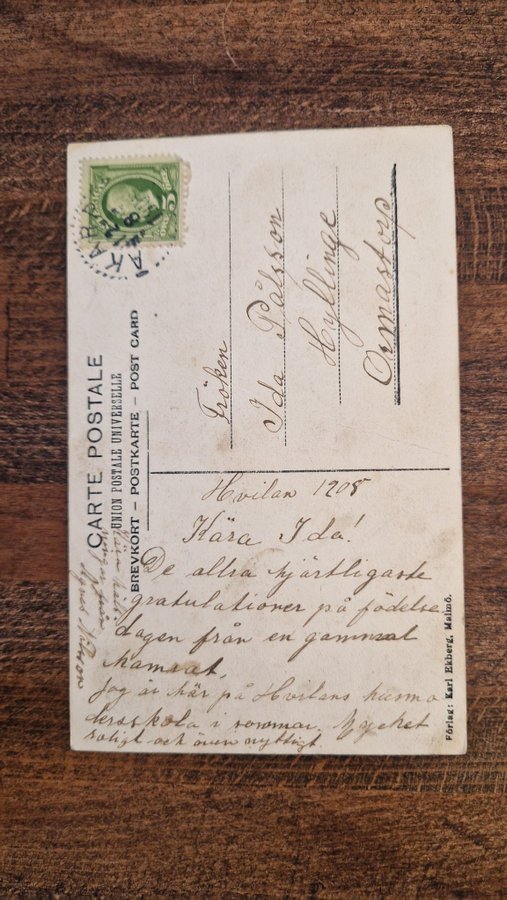 CARTE POSTALE
UNION POSTALE UNIVERSELLE
BREVKORT – POSTKARTE – POST CARD
Fröken
Ida Pålsson
Hyllinge
Ormastorp.
Hvilan 1208
Kära Ida!
De allra hjärtligaste
gratulationer på födelse
dagen från en gammal
kamrat,
Jag är här på Hvilans husmo
derskola i sommar, Mycket
roligt och även nyttigt.
Förlag: Karl Ekberg, Malmö.